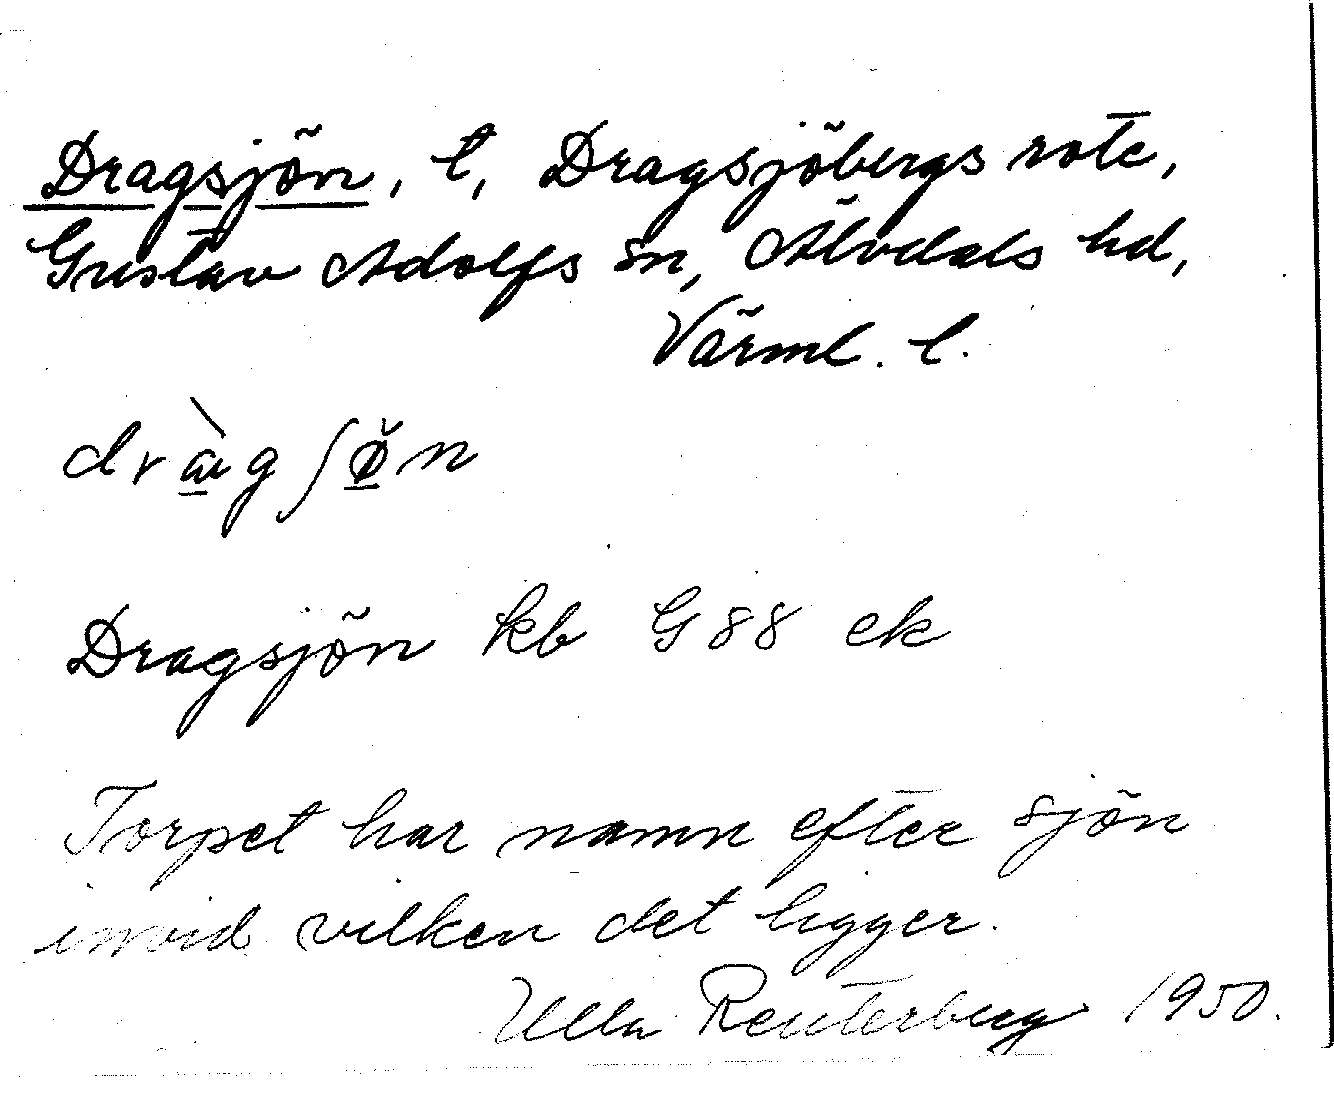 Dragsjön, t, Dragsjöbergs rote,
Gustav Adolfs sn, Älvdals hd,
Värml. l.
Dragsjön kb G 88 ek
Torpet har namn efter sjön
invid vilken det ligger.
Ulla Reuterberg 1950.